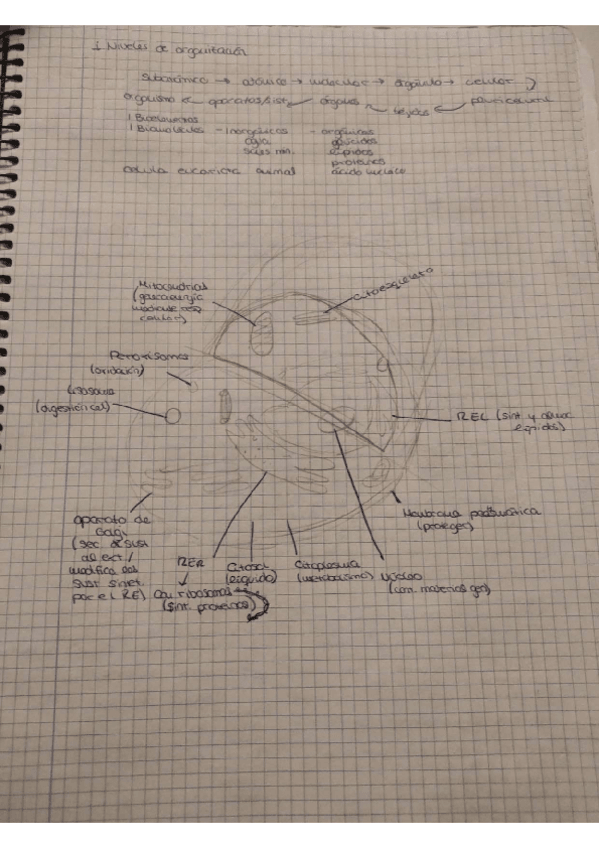 1 Niveles de organización
Subatómico → atómico → molecular → orgánulo → celular
organismo ← aparatos/sist ← órganos ← tejidos ← pluricelular
1 Bioelementos
1 Biomoléculas - inorgánicas - orgánicas
agua glúcidos
sales min. lípidos
proteínas
célula eucariota animal ácido nucleico
Mitocondrias
citoesqueleto
celular)
Peroxisomas
(oxidación)
Lisosoma
(digestión cel.)
REL (sint. y
lípidos)
Membrana plasmática
(proteger)
aparato de
Golgi
(sec. de sust
al ext./
modifica las
sust. sintet.
por el RE)
RER
con ribosomas
(sint. proteínas)
Citosol
(líquido)
Citoplasma
(metabolismo)
Núcleo
(cont. material gen)